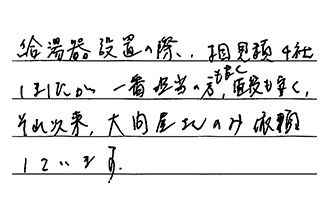 給湯器設置の際、相見積4社
しましたが一番担当の方もよく、値段も安く、
それ以来、大問屋さんのみ依頼
しています。